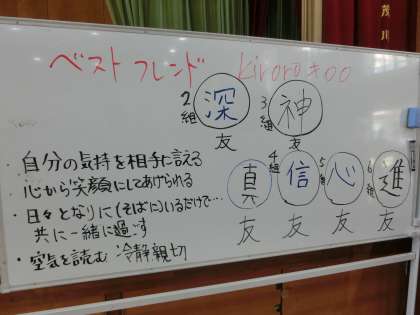 茂川
ベストフレンド kiroro キロロ
2組 深友
3組 神友
4組 真友
信友
5組 心友
6組 進友
・自分の気持を相手に言える
心から笑顔にしてあげられる
・日々となりに(そばに)いるだけで…
共に一緒に過ごす
・空気を読む 冷静親切